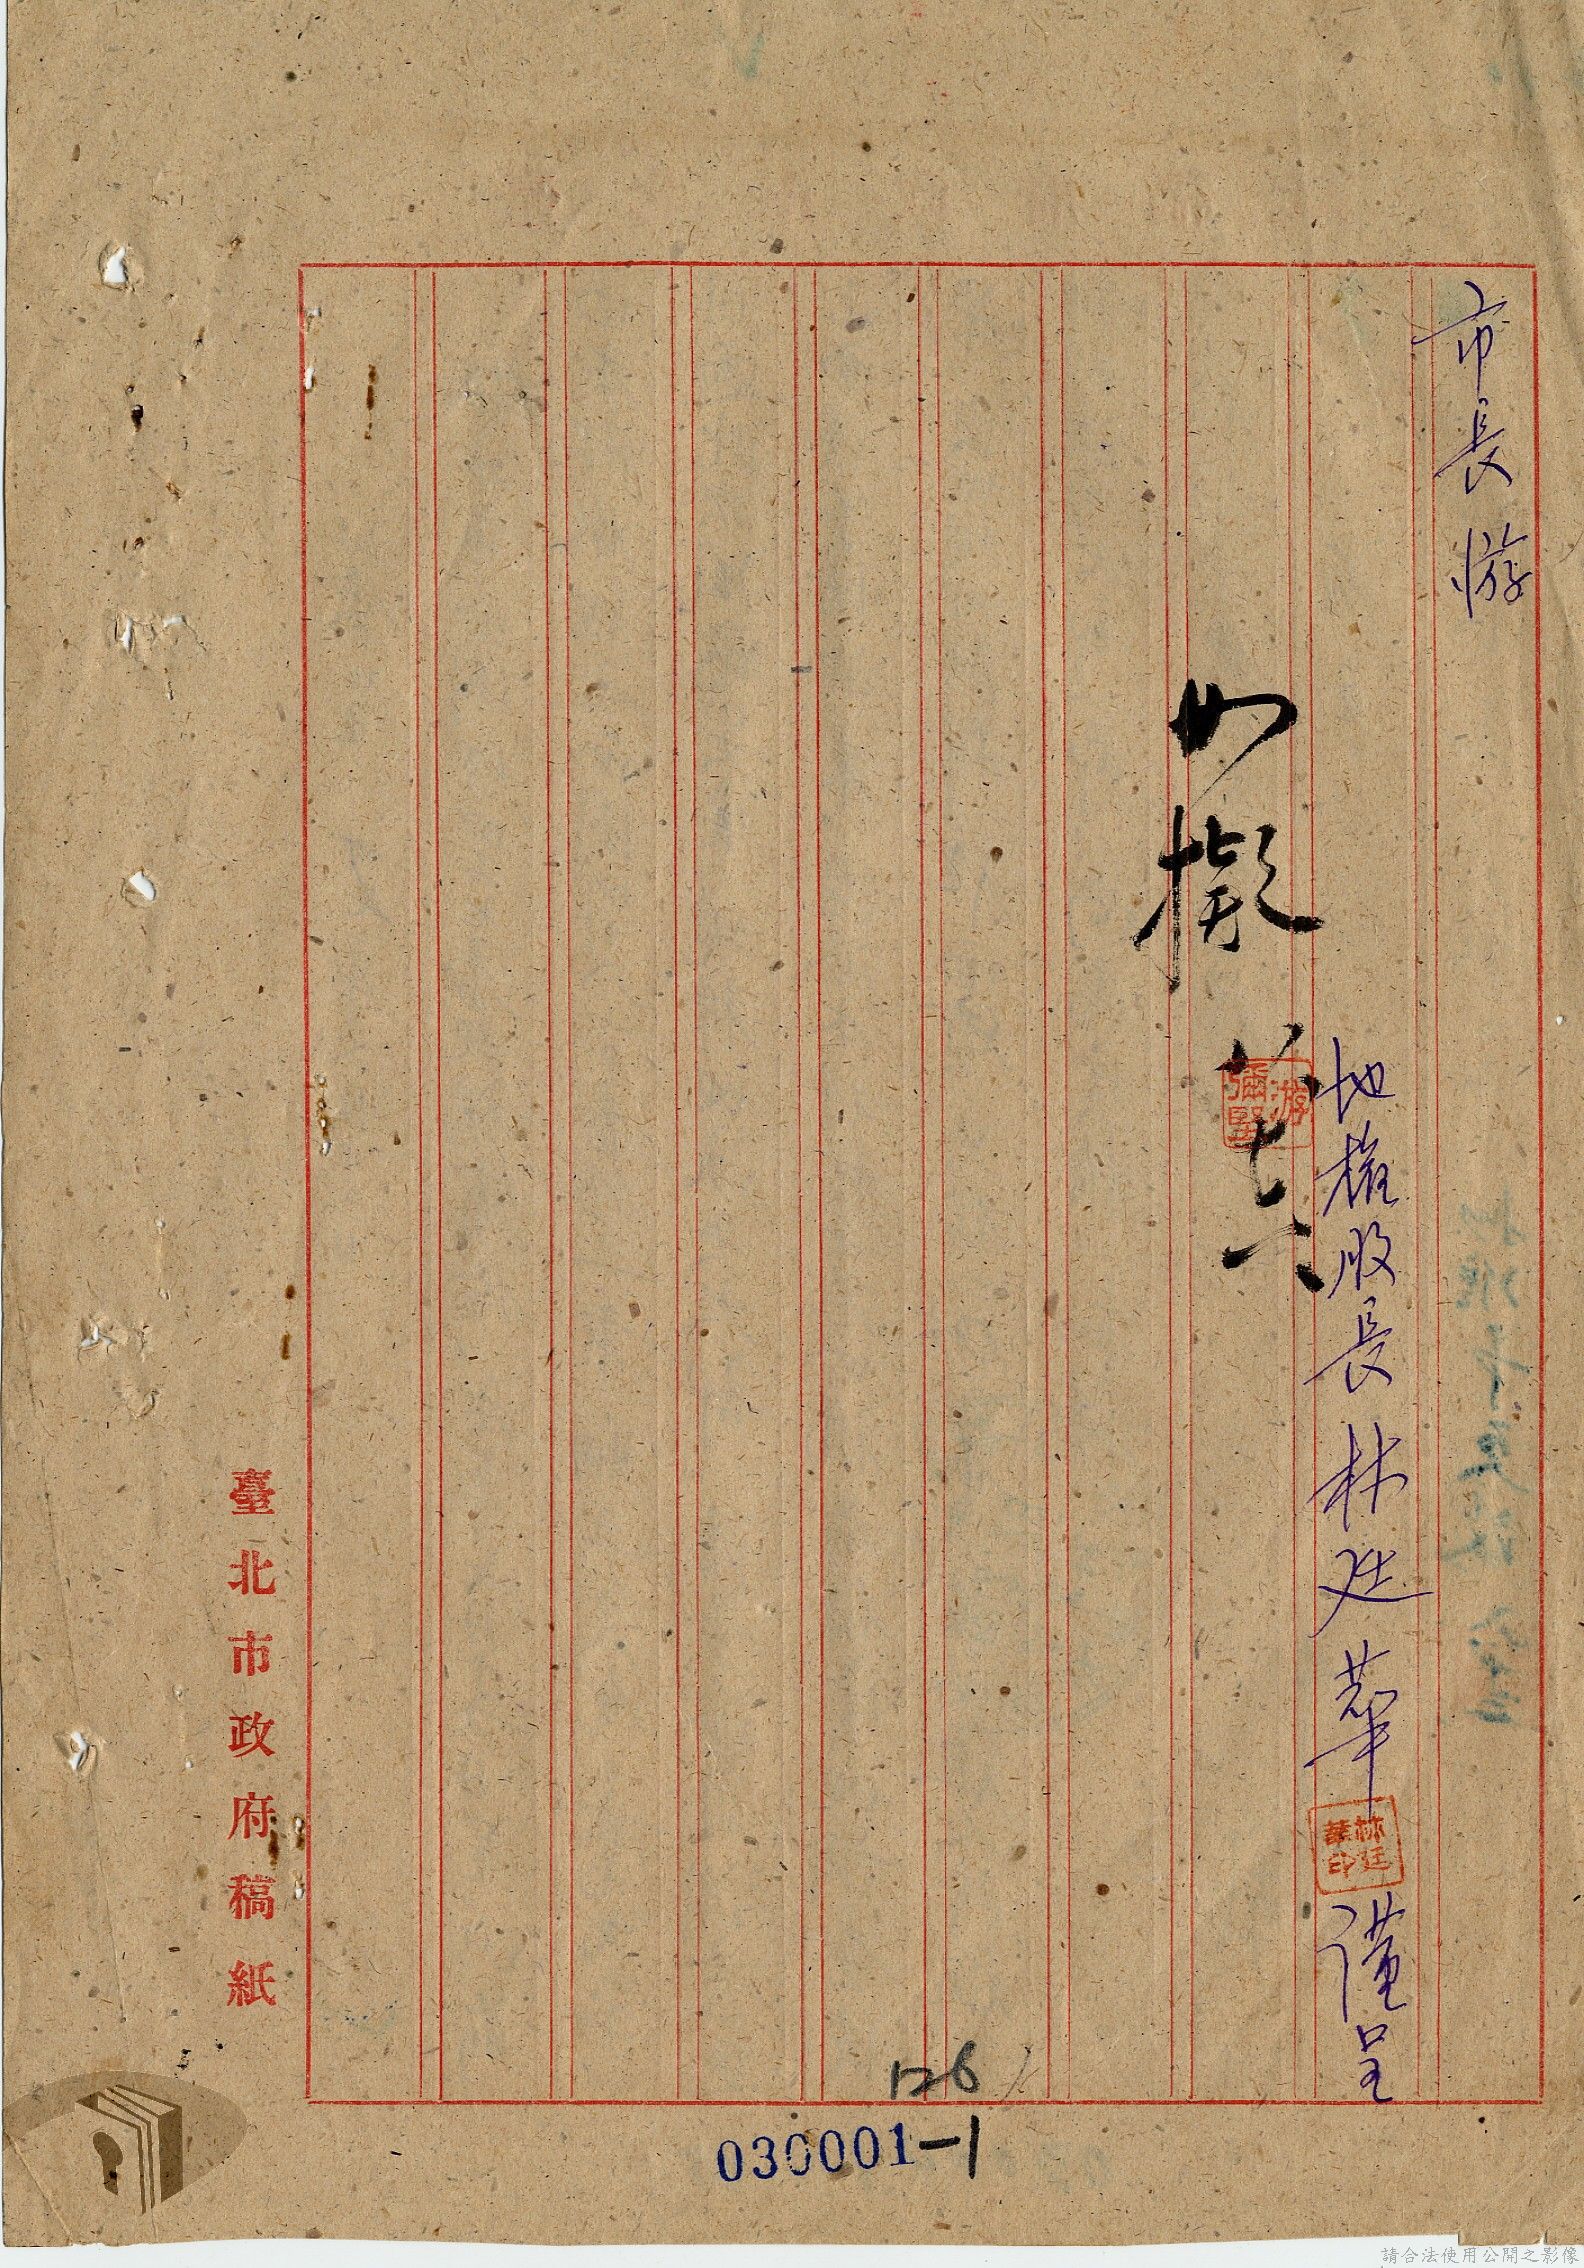 市長游
地權股長林廷華謹呈
林廷華印
如擬
游彌堅
臺北市政府稿紙
126
030001-1
請合法使用公開之影像